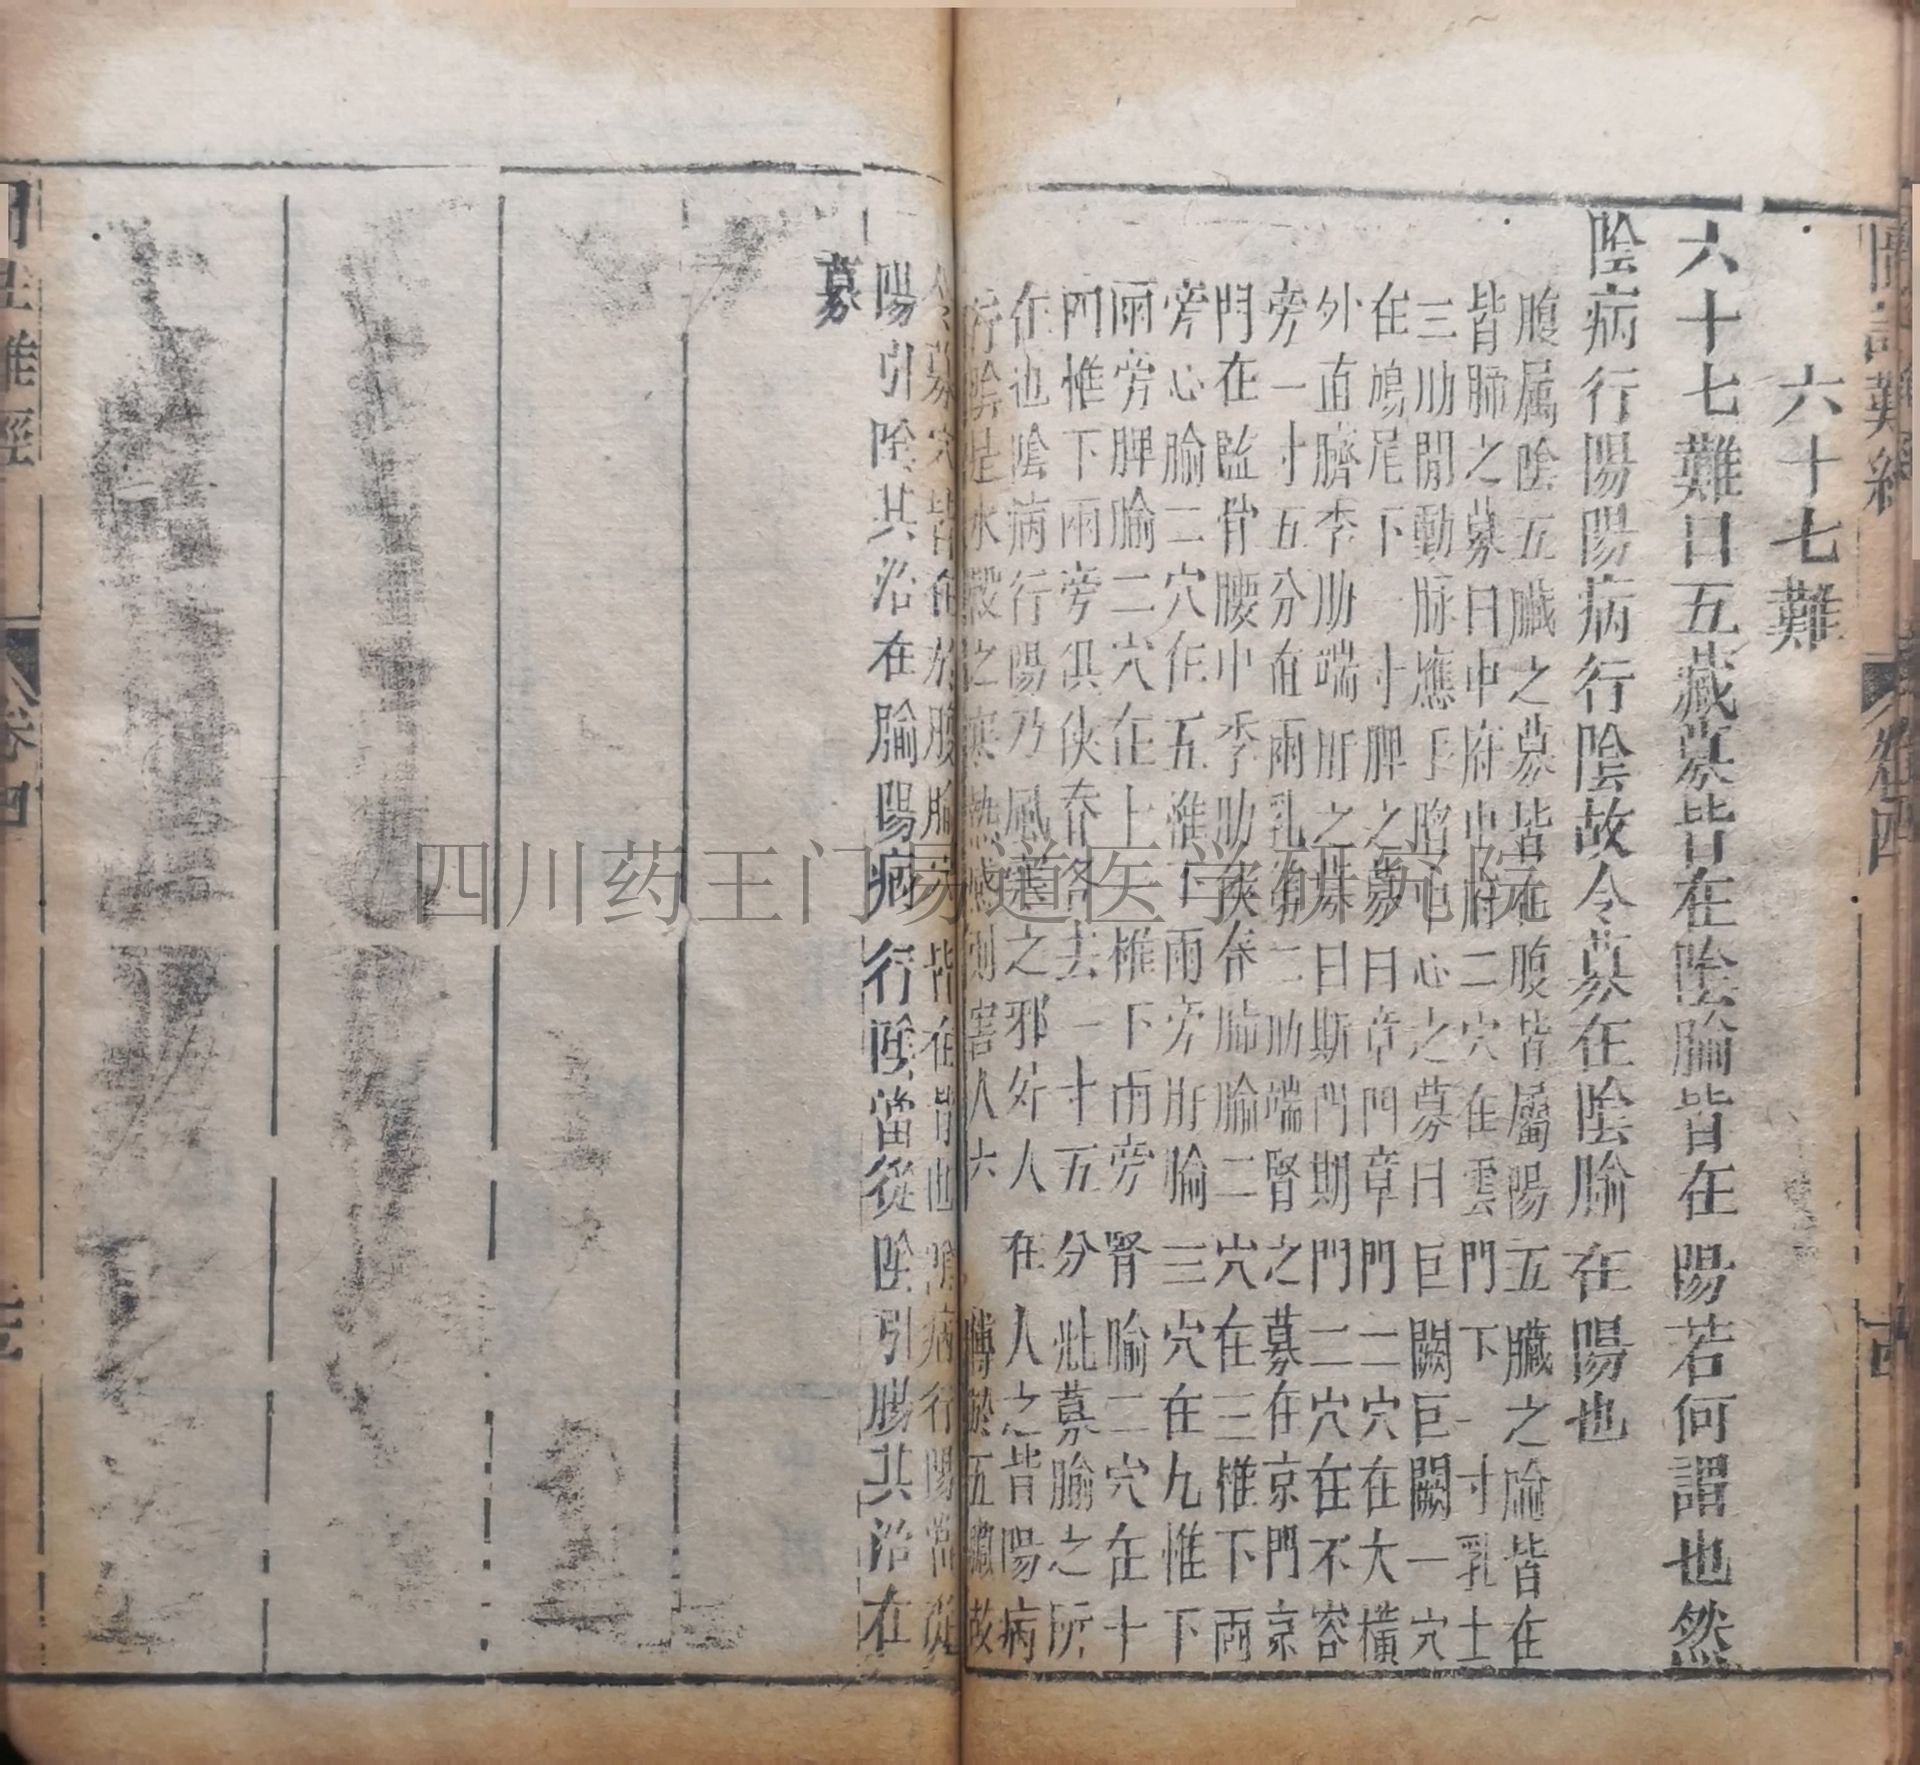 六十七難
六十七難曰五藏募皆在陰腧皆在陽若何謂也然
陰病行陽陽病行陰故令募在陰腧在陽也
腹属陰五臓之募皆在腹皆屬陽五臓之腧皆在
皆肺之募曰中府中府二穴在雲門下一寸乳上
三肋間動脉應手陷中心之募曰巨闕巨闕一穴
在鳩尾下一寸脾之募曰章門章門二穴在大橫
外直臍季肋端肝之募曰期門期門二穴在不容
旁一寸五分直兩乳第二肋端腎之募在京門京
門在監骨腰中季肋俠脊肺腧二穴在三椎下兩
旁心腧二穴在五椎下兩旁肝腧二穴在九椎下
兩旁脾腧二穴在十一椎下兩旁腎腧二穴在十
四椎下兩旁俱俠脊各去一寸五分此募腧之所
在也陰病行陽乃風寒之邪好人在人之背陽病
行陰是水穀之寒熱感則害人六腑於五臟故
人之募穴皆在於腹腧穴皆在背也陰病行陽當從
陽引陰其治在腧陽病行陰當從陰引陽其治在
募
卷四
四川药王门易道医学研究院